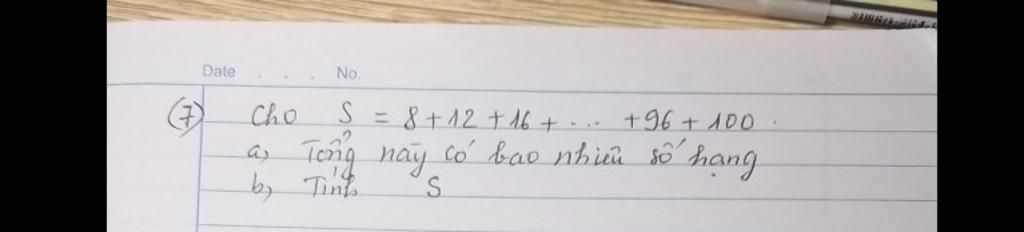 Date . . . No.
(7) Cho S = 8 + 12 + 16 + ... + 96 + 100 .
a, Tổng này có bao nhiêu số hạng
b, Tính S